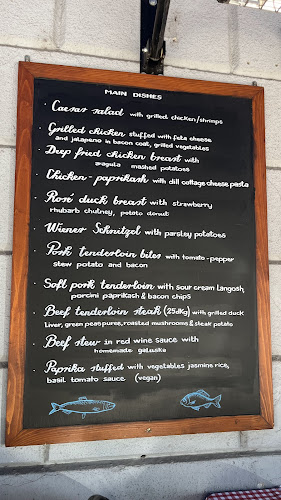 MAIN DISHES
Caesar salad with grilled chicken/shrimps
Grilled chicken stuffed with feta cheese
and jalapeno in bacon coat, grilled vegetables
Deep fried chicken breast with
arugula mashed potatoes
Chicken-paprikash with dill cottage cheese pasta
Rosé duck breast with strawberry
rhubarb chutney, potato donut
Wiener Schnitzel with parsley potatoes
Pork tenderloin bites with tomato-pepper
stew potato and bacon
Soft pork tenderloin with sour cream Langosh,
porcini paprikash & bacon chips
Beef tenderloin steak (25dkg) with grilled duck
Liver, green peas puree, roasted mushrooms & steak potato
Beef stew in red wine sauce with
homemade galuska
Paprika stuffed with vegetables jasmine rice,
basil tomato sauce (vegan)